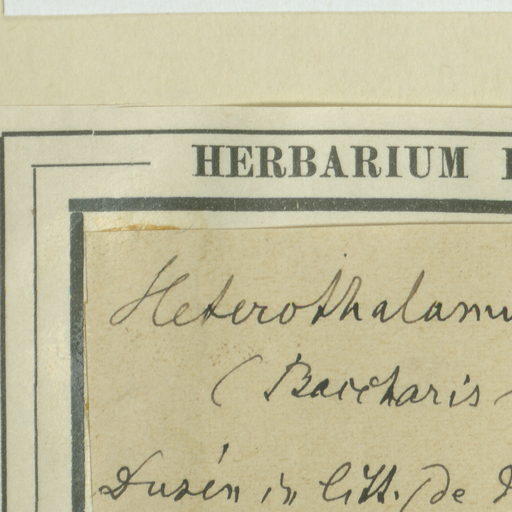 HERBARIUM
Heterothalamu
( Baccharis
Dusén in litt. de